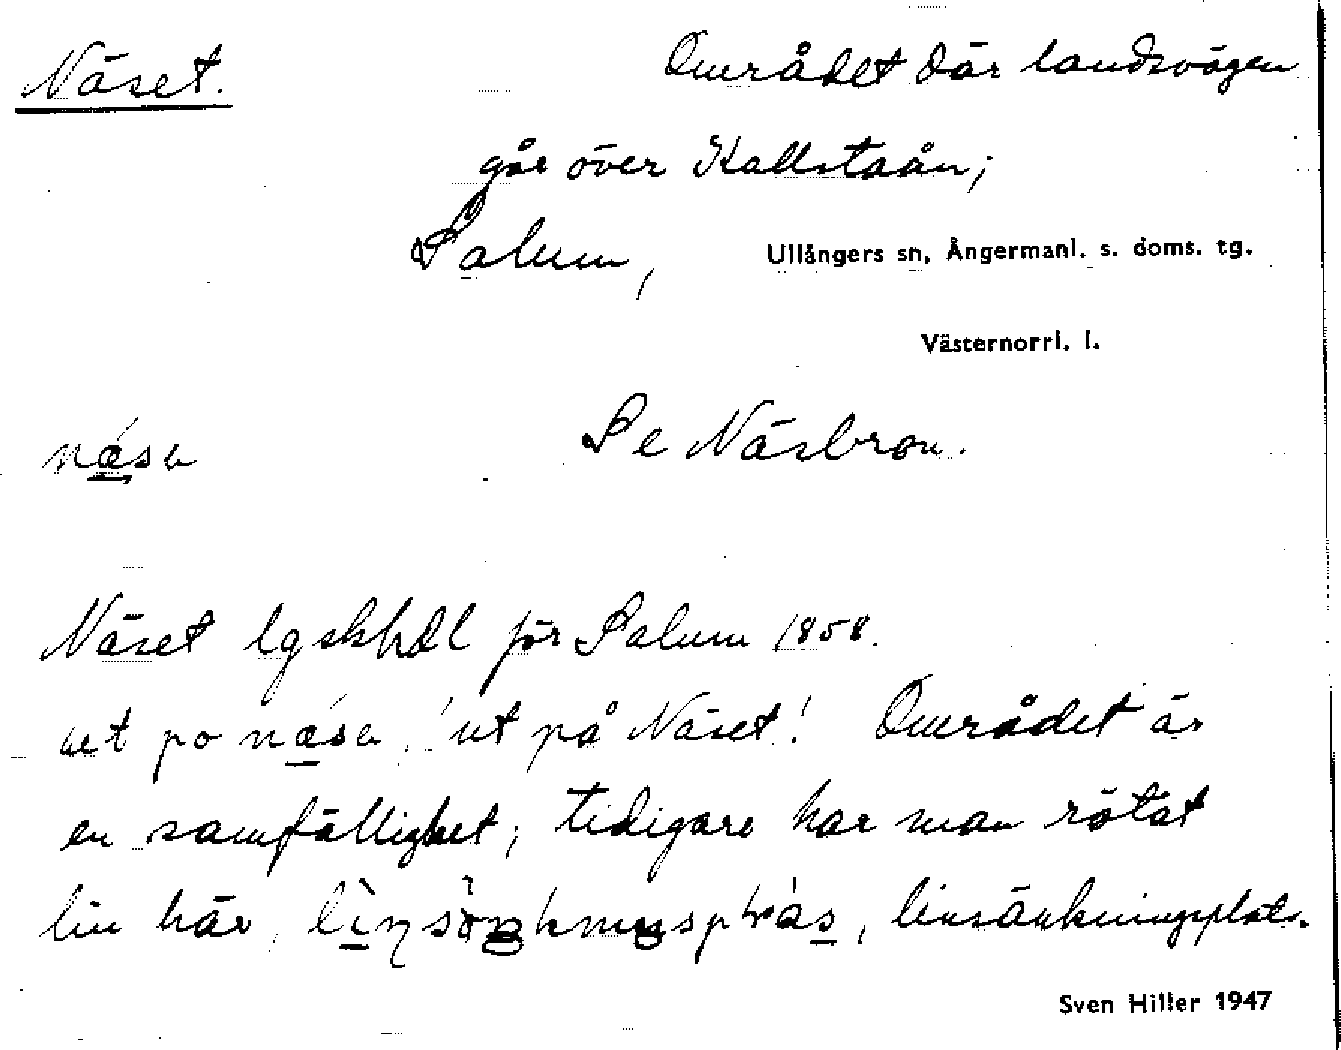 Näset. Området där landsvägen
går över Kallstaån;
Salum, Ullångers sn, Ångermanl. s. doms. tg.
Västernorrl. l.
nǽ̲sə Se Näsbron.
Näset lgskhdl för Salum 1858.
ut po nǽ̲sə, 'ut på Näset'. Området är
en samfällighet, tidigare har man rötat
lin här, linsänkningsplats.
Sven Hiller 1947